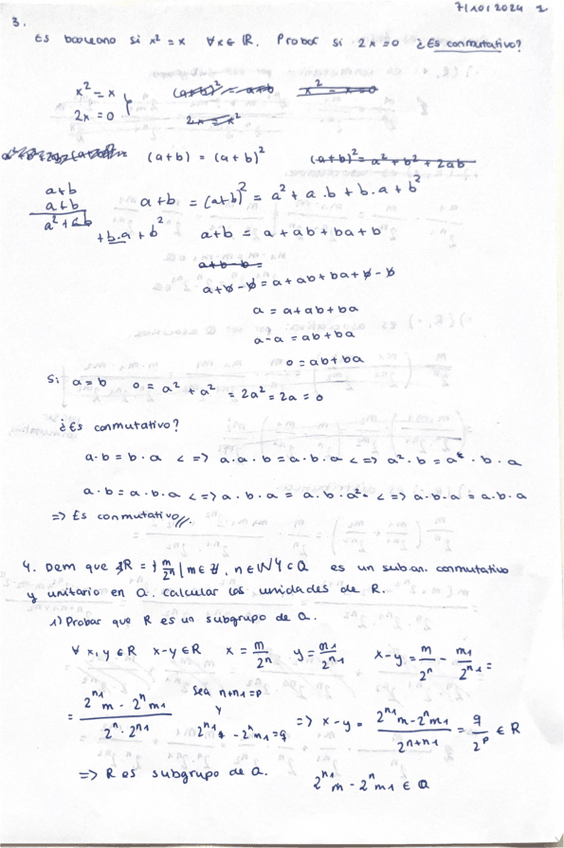 7/10/2024 2
3.
Es booleano si x² = x ∀x ∈ R. Probar si 2x = 0 ¿Es conmutativo?
x² = x (a+b)² = a+b x² - x = 0
2x = 0 2x = x²
(a+b) = (a+b)² (a+b)² = a² + b² + 2ab
a+b
a+b a+b = (a+b)² = a² + a.b + b.a + b²
a² + ab
+ b.a + b² a+b = a + ab + ba + b
a+b-b =
a + b - b = a + ab + ba + b - b
a = a + ab + ba
a - a = ab + ba
0 = ab + ba
Si a = b 0 = a² + a² = 2a² = 2a = 0
¿Es conmutativo?
a·b = b·a <=> a·a·b = a·b·a <=> a²·b = a²·b·a
a·b = a·b·a <=> a·b·a = a·b·a² <=> a·b·a = a·b·a
=> Es conmutativo //
4. Dem que R = { m/2ⁿ | m ∈ Z, n ∈ N } ⊂ Q es un suban. conmutativo
y unitario en Q. calcular las unidades de R.
1) Probar que R es un subgrupo de Q.
∀ x, y ∈ R x-y ∈ R x = m/2ⁿ y = m1/2ⁿ¹ x-y = m/2ⁿ - m1/2ⁿ¹ =
= (2ⁿ¹m - 2ⁿm1)/(2ⁿ · 2ⁿ¹) Sea n+n1 = p y 2ⁿ¹ - 2ⁿm1 = q => x-y = (2ⁿ¹m - 2ⁿm1)/2ⁿ⁺ⁿ¹ = q/2ᵖ ∈ R
=> R es subgrupo de Q. 2ⁿ¹m - 2ⁿm1 ∈ Q